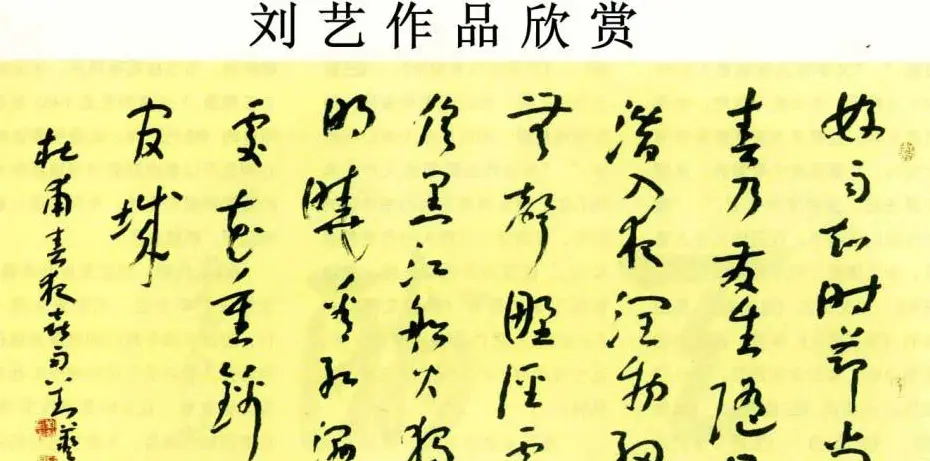 刘艺作品欣赏
好雨知时節当
春乃发生随
潜入夜润物细
無聲野径云
俱黑江船火独
明晓看红湿
处花重锦
官城
杜甫春夜喜雨刘藝